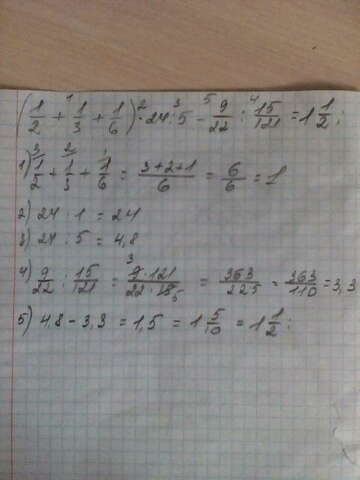 (1/2 + 1/3 + 1/6) · 24 : 5 - 9/22 : 15/121 = 1 1/2;
1) 1/2 + 1/3 + 1/6 = 3+2+1/6 = 6/6 = 1
2) 24 : 1 = 24
3) 24 : 5 = 4,8
4) 9/22 : 15/121 = 9·121/22·15 = 363/225 = 363/110 = 3,3
5) 4,8 - 3,3 = 1,5 = 1 5/10 = 1 1/2;